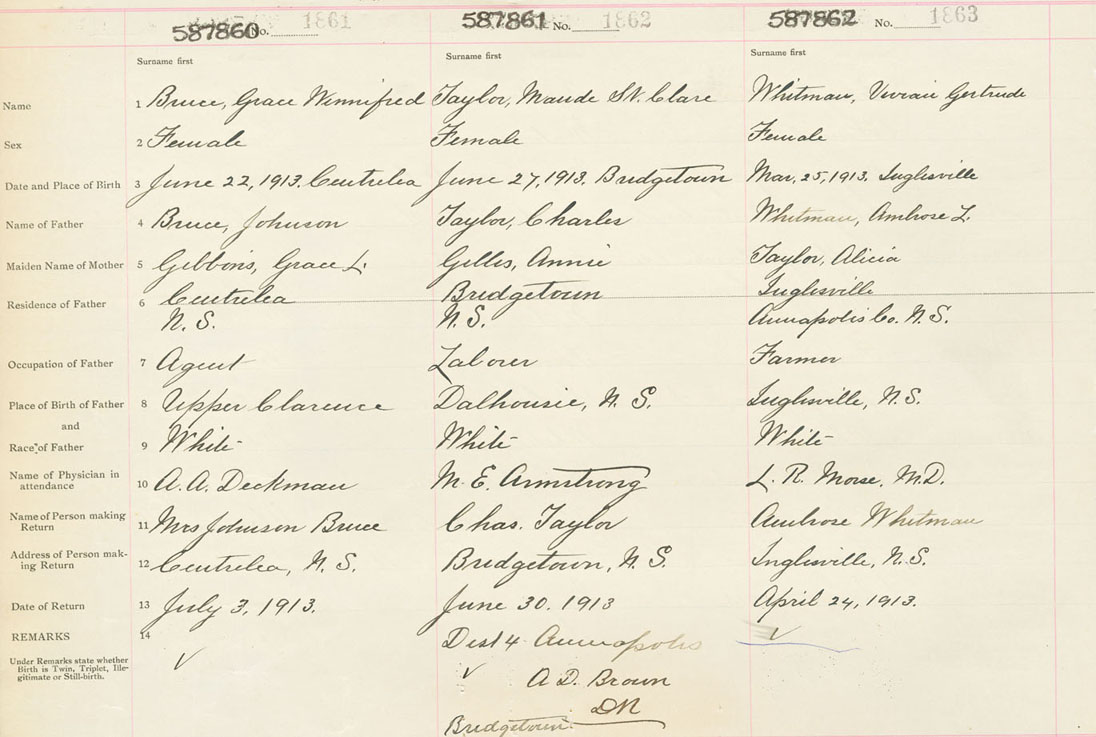 587860 No. 1861 587861 No. 1862 587862 No. 1863
Surname first Surname first Surname first
Name 1 Bruce, Grace Winnifred Taylor, Maude St. Clare Whitman, Vivian Gertrude
Sex 2 Female Female Female
Date and Place of Birth 3 June 22, 1913. Centrelea June 27, 1913. Bridgetown Mar. 25, 1913. Inglisville
Name of Father 4 Bruce, Johnson Taylor, Charles Whitman, Ambrose L.
Maiden Name of Mother 5 Gibbons, Grace L. Gillis, Annie Taylor, Alicia
Residence of Father 6 Centrelea Bridgetown Inglisville
N. S. N. S. Annapolis Co. N. S.
Occupation of Father 7 Agent Laborer Farmer
Place of Birth of Father 8 Upper Clarence Dalhousie, N. S. Inglisville, N. S.
and
Race of Father 9 White White White
Name of Physician in
attendance 10 A. A. Deckman M. E. Armstrong L. R. Morse, M.D.
Name of Person making
Return 11 Mrs Johnson Bruce Chas. Taylor Ambrose Whitman
Address of Person mak-
ing Return 12 Centrelea, N. S. Bridgetown, N. S. Inglisville, N. S.
Date of Return 13 July 3, 1913. June 30. 1913 April 24, 1913.
REMARKS 14 Dist 4 Annapolis
Under Remarks state whether
Birth is Twin, Triplet, Ille-
gitimate or Still-birth.
✓ ✓ ✓
A. D. Brown
DR
Bridgetown.